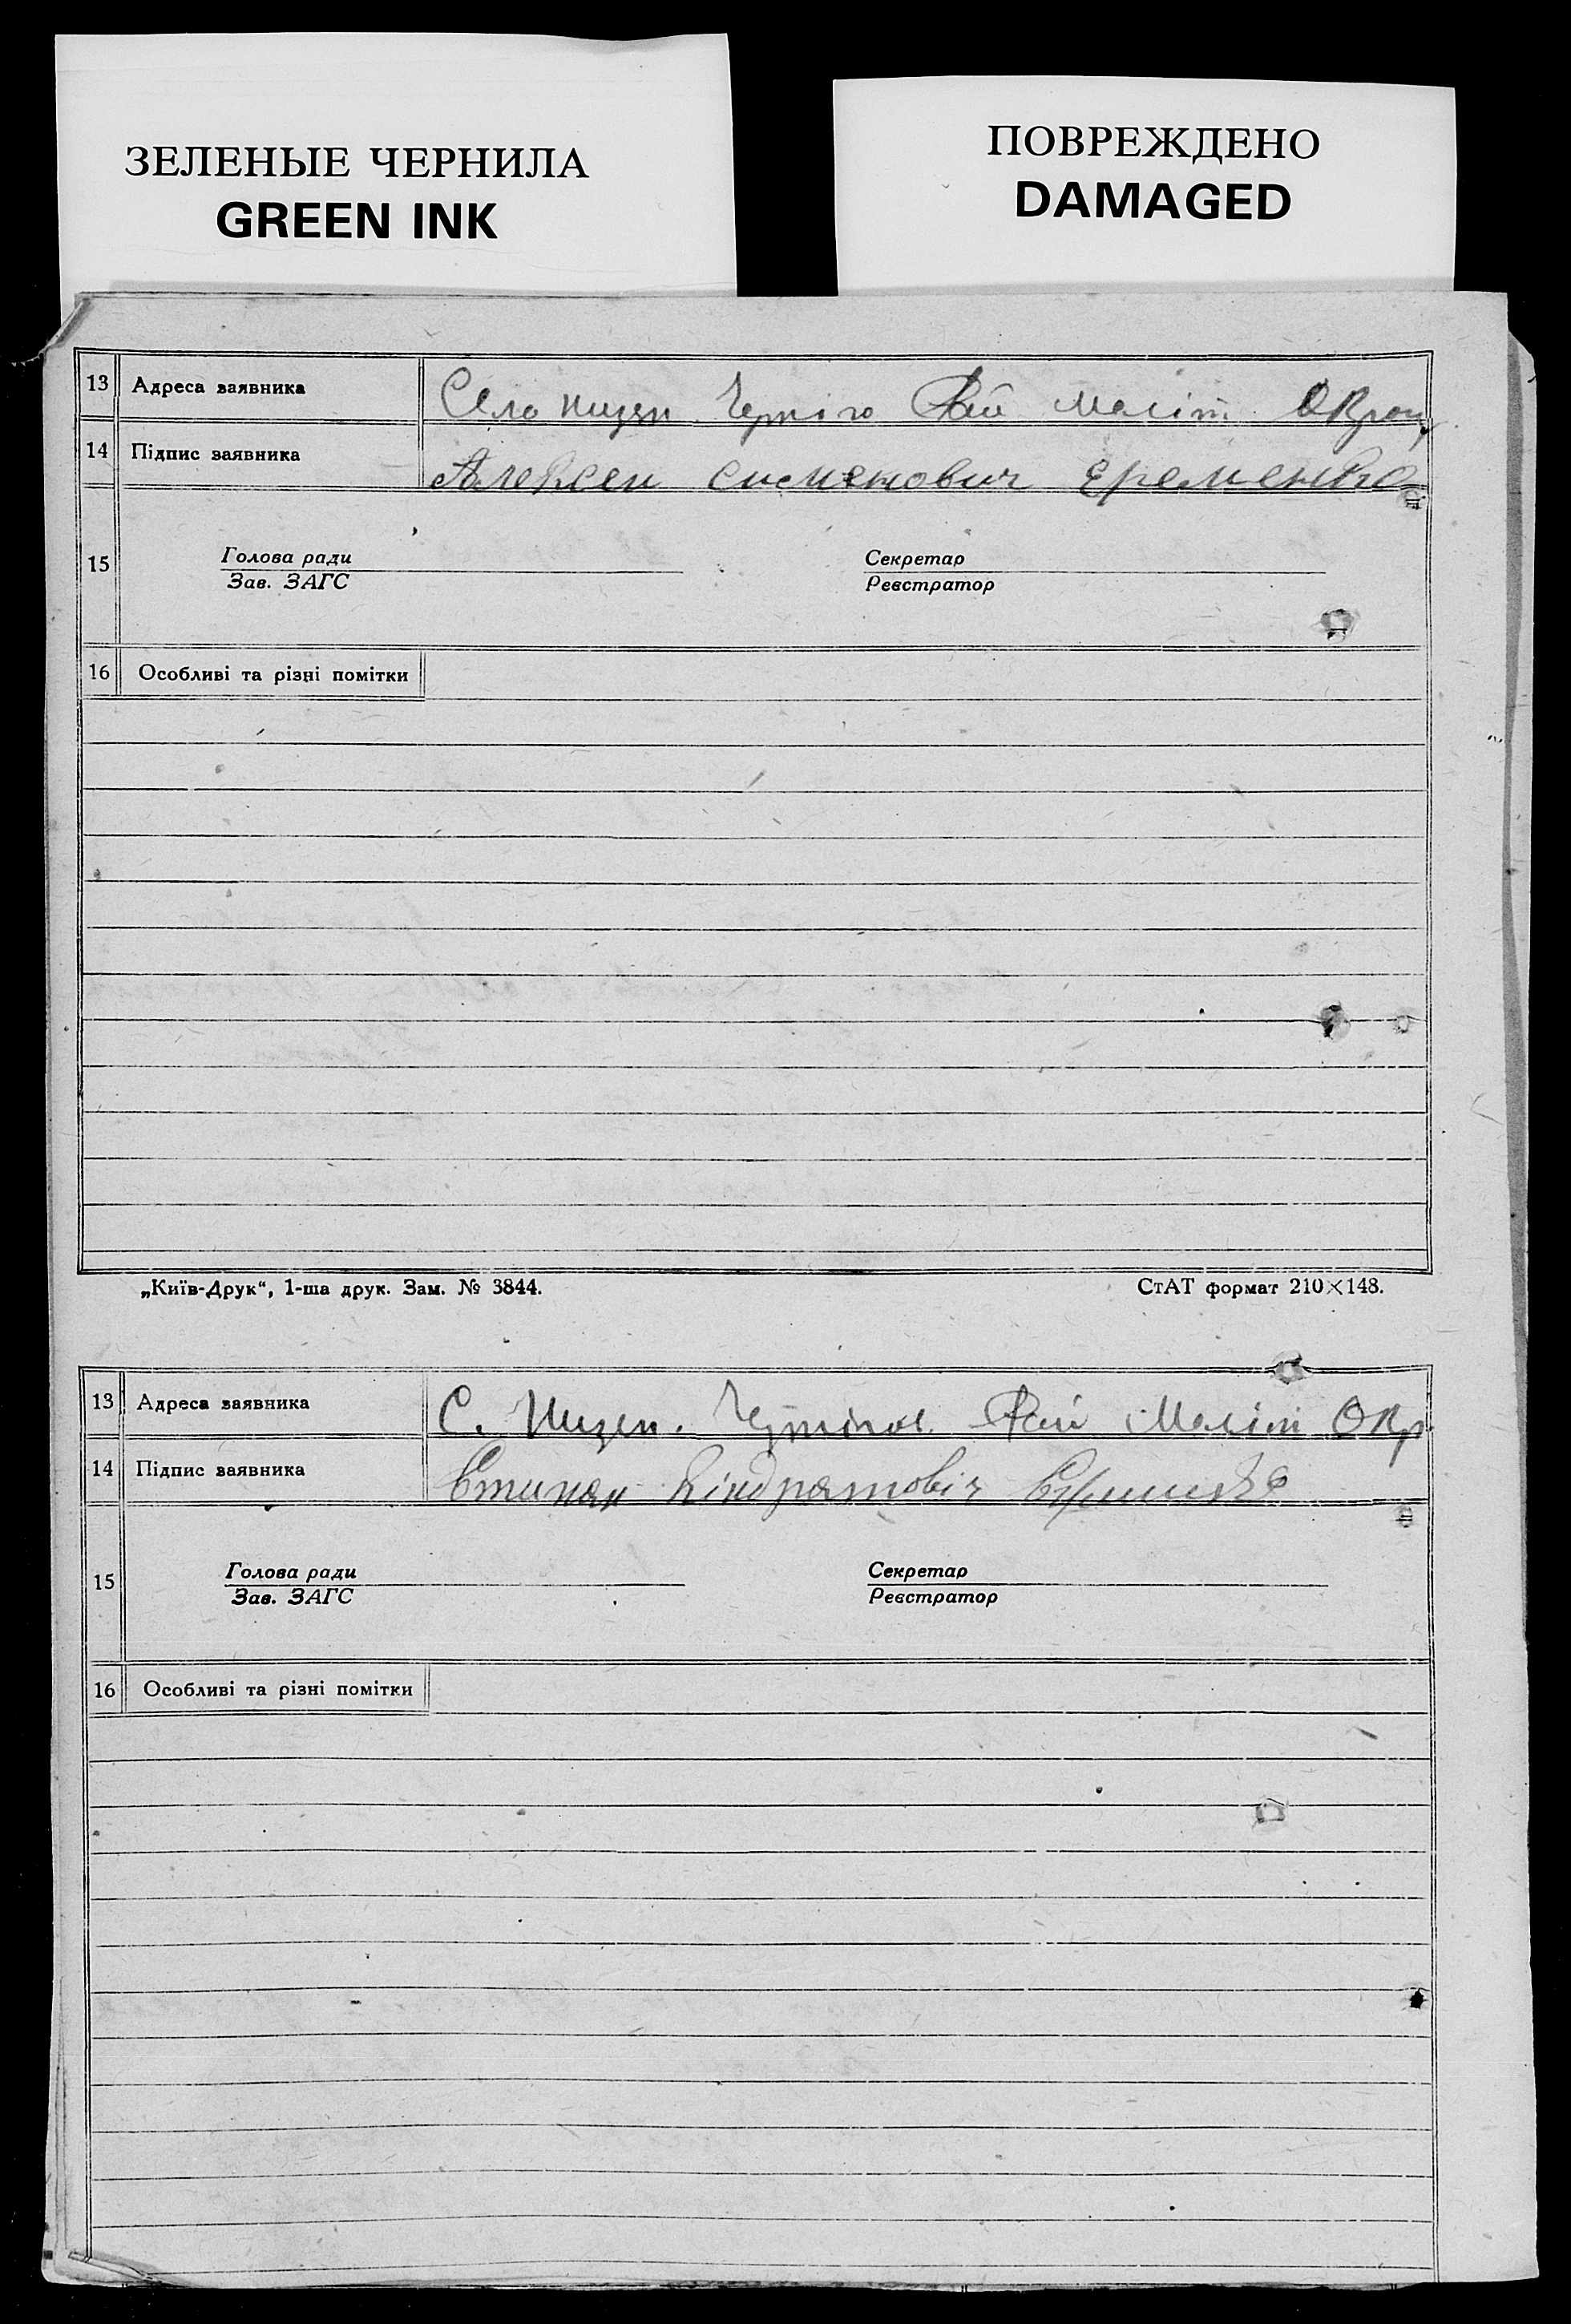 ЗЕЛЕНЫЕ ЧЕРНИЛА
GREEN INK
ПОВРЕЖДЕНО
DAMAGED
13 Адреса заявника Село Низян Черніго Рай Меліт Окрогу
14 Підпис заявника Алексеи Еременко
15 Голова ради Секретар
Зав. ЗАГС Реєстратор
16 Особливі та різні помітки
„Київ-Друк“, 1-ша друк. Зам. № 3844. СтАТ формат 210×148.
13 Адреса заявника С. Низян. Рай Меліт Окр.
14 Підпис заявника Стипан Кіндратовіч
15 Голова ради Секретар
Зав. ЗАГС Реєстратор
16 Особливі та різні помітки